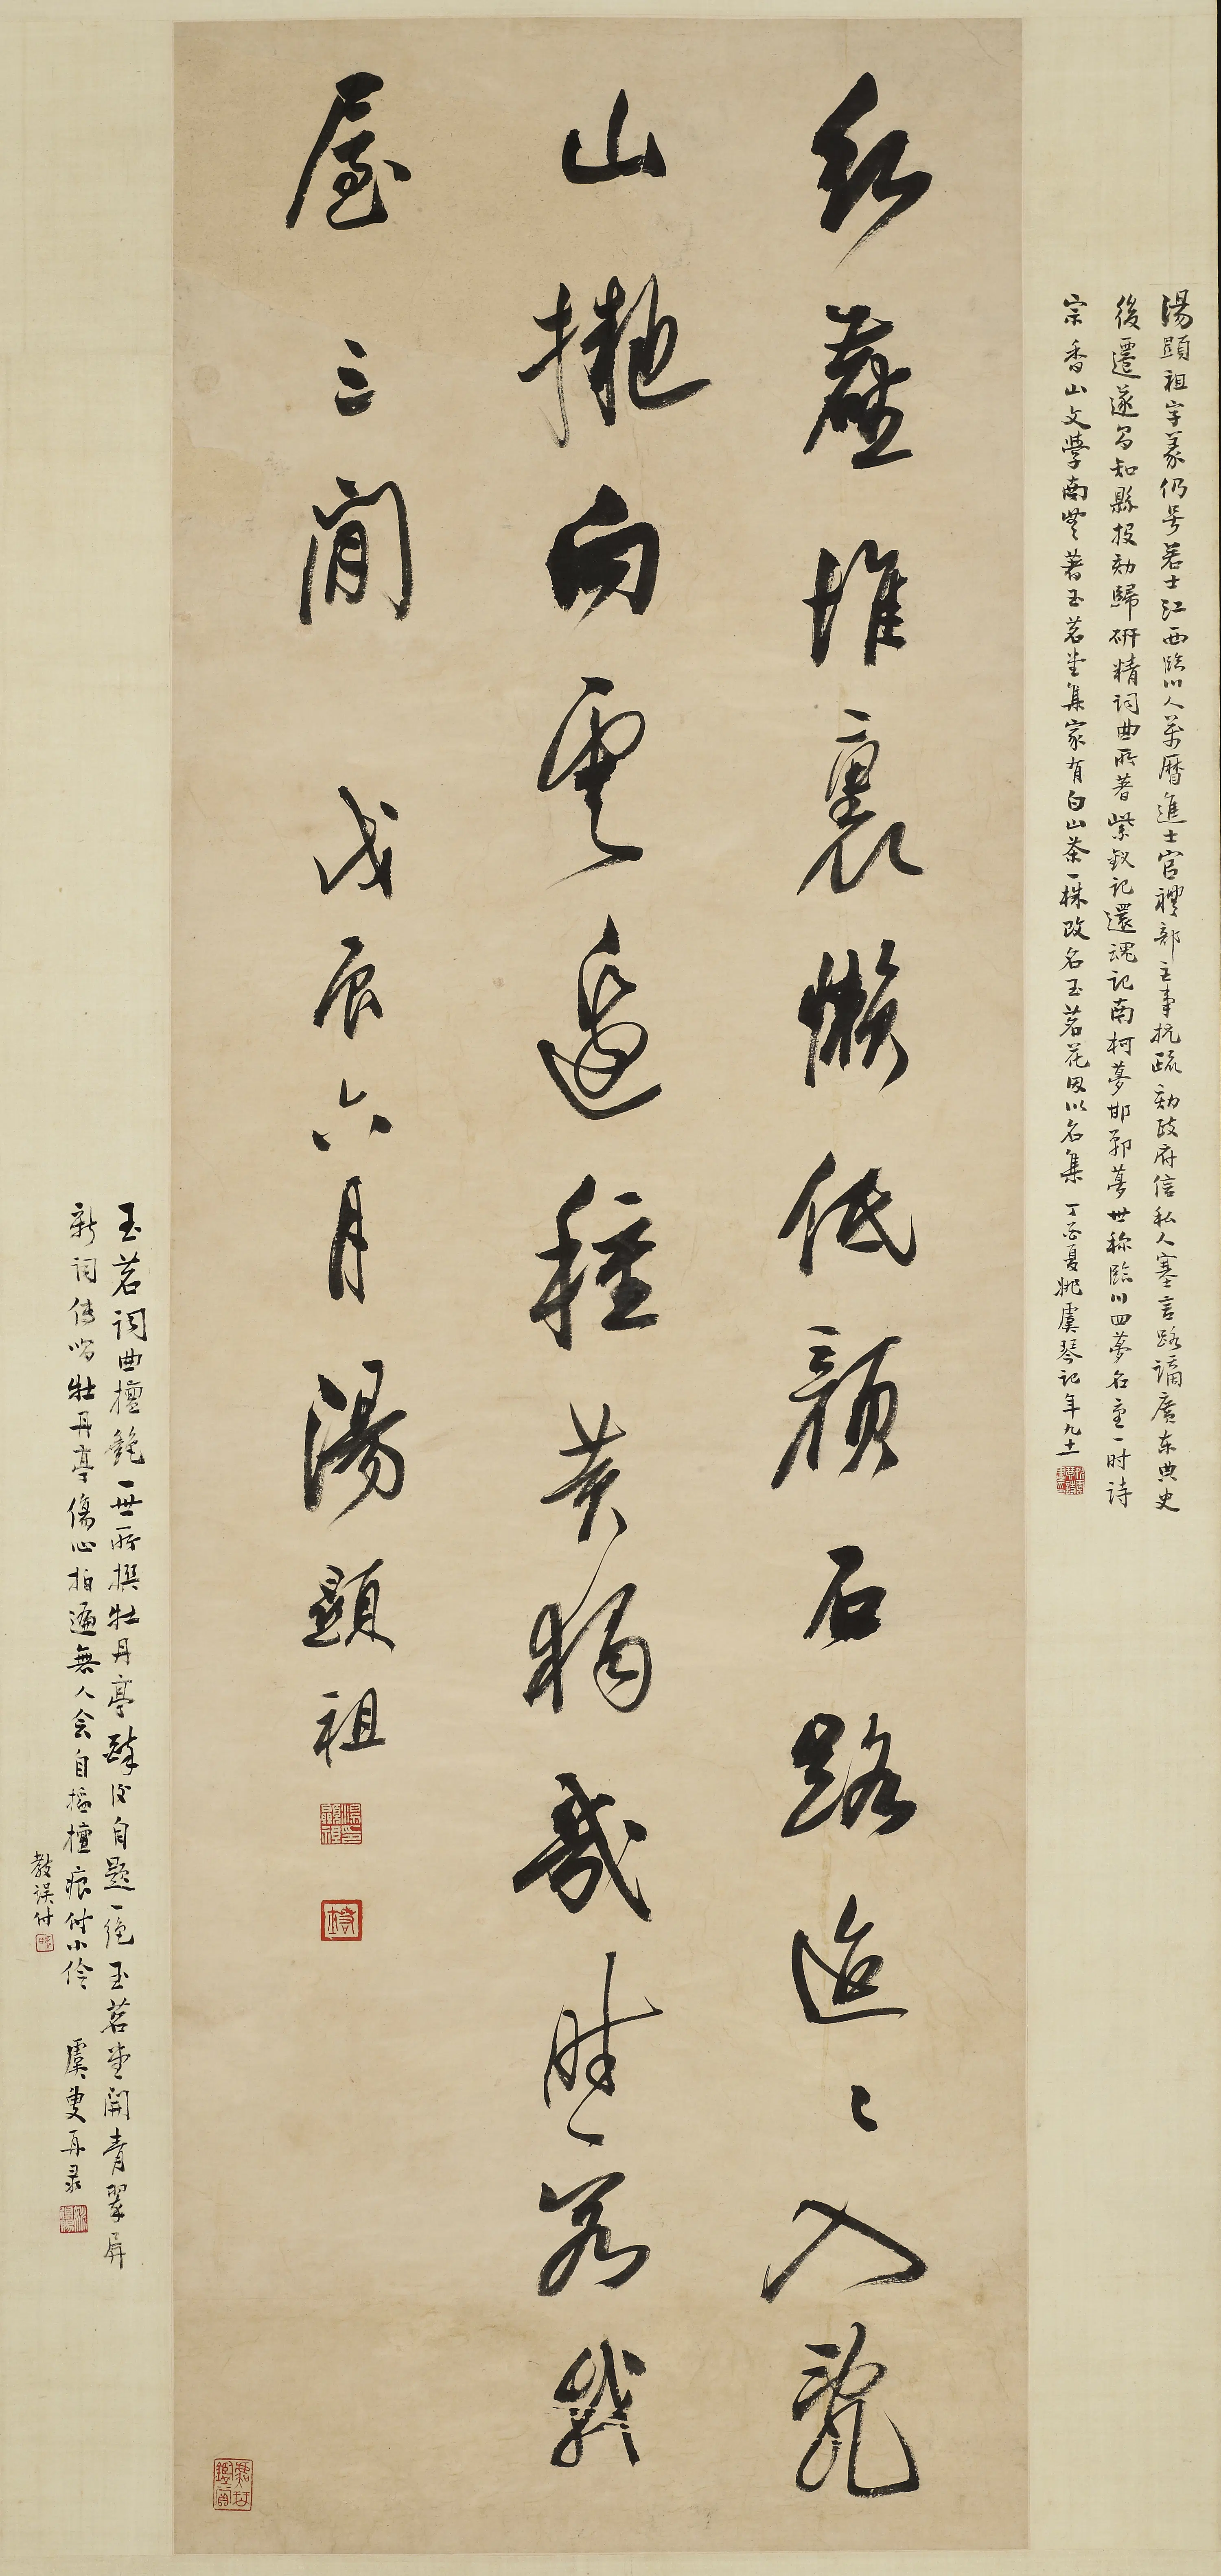 湯顯祖字義仍号若士江西臨川人萬曆進士官禮部主事抗疏劾政府信私人塞言路謫廣东典史
後遷遂昌知縣投劾歸研精詞曲所著紫釵記還魂記南柯夢邯鄲夢世称臨川四夢名重一时詩
宗香山文學南豐著玉茗堂集家有白山茶一株改名玉茗花因以名集 丁酉夏姚虞琴記年九十一
紅塵堆裏懶低顏石路迢々入亂
山擬向雲邊種黃獨幾時容我
屋三間 戊辰六月湯顯祖
玉茗詞曲擅絕一世所撰牡丹亭殺后自題一絕玉茗堂開青翠屏
新詞传唱牡丹亭傷心拍遍無人会自搯檀痕付小伶 虞叟再录
教误付